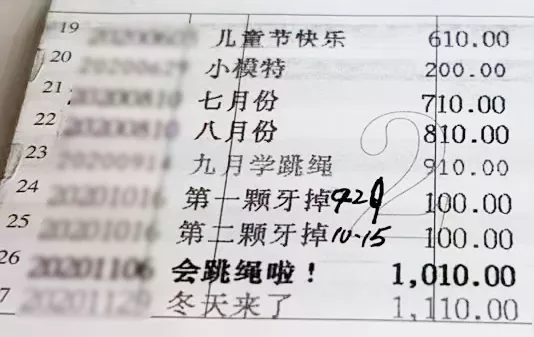 19 儿童节快乐 610.00
20 小模特 200.00
21 20200810 七月份 710.00
22 20200810 八月份 810.00
23 九月学跳绳 910.00
24 20201016 第一颗牙掉 100.00
25 20201016 第二颗牙掉10-15 100.00
26 20201106 会跳绳啦！ 1,010.00
20201129 冬天来了 1,110.00
2